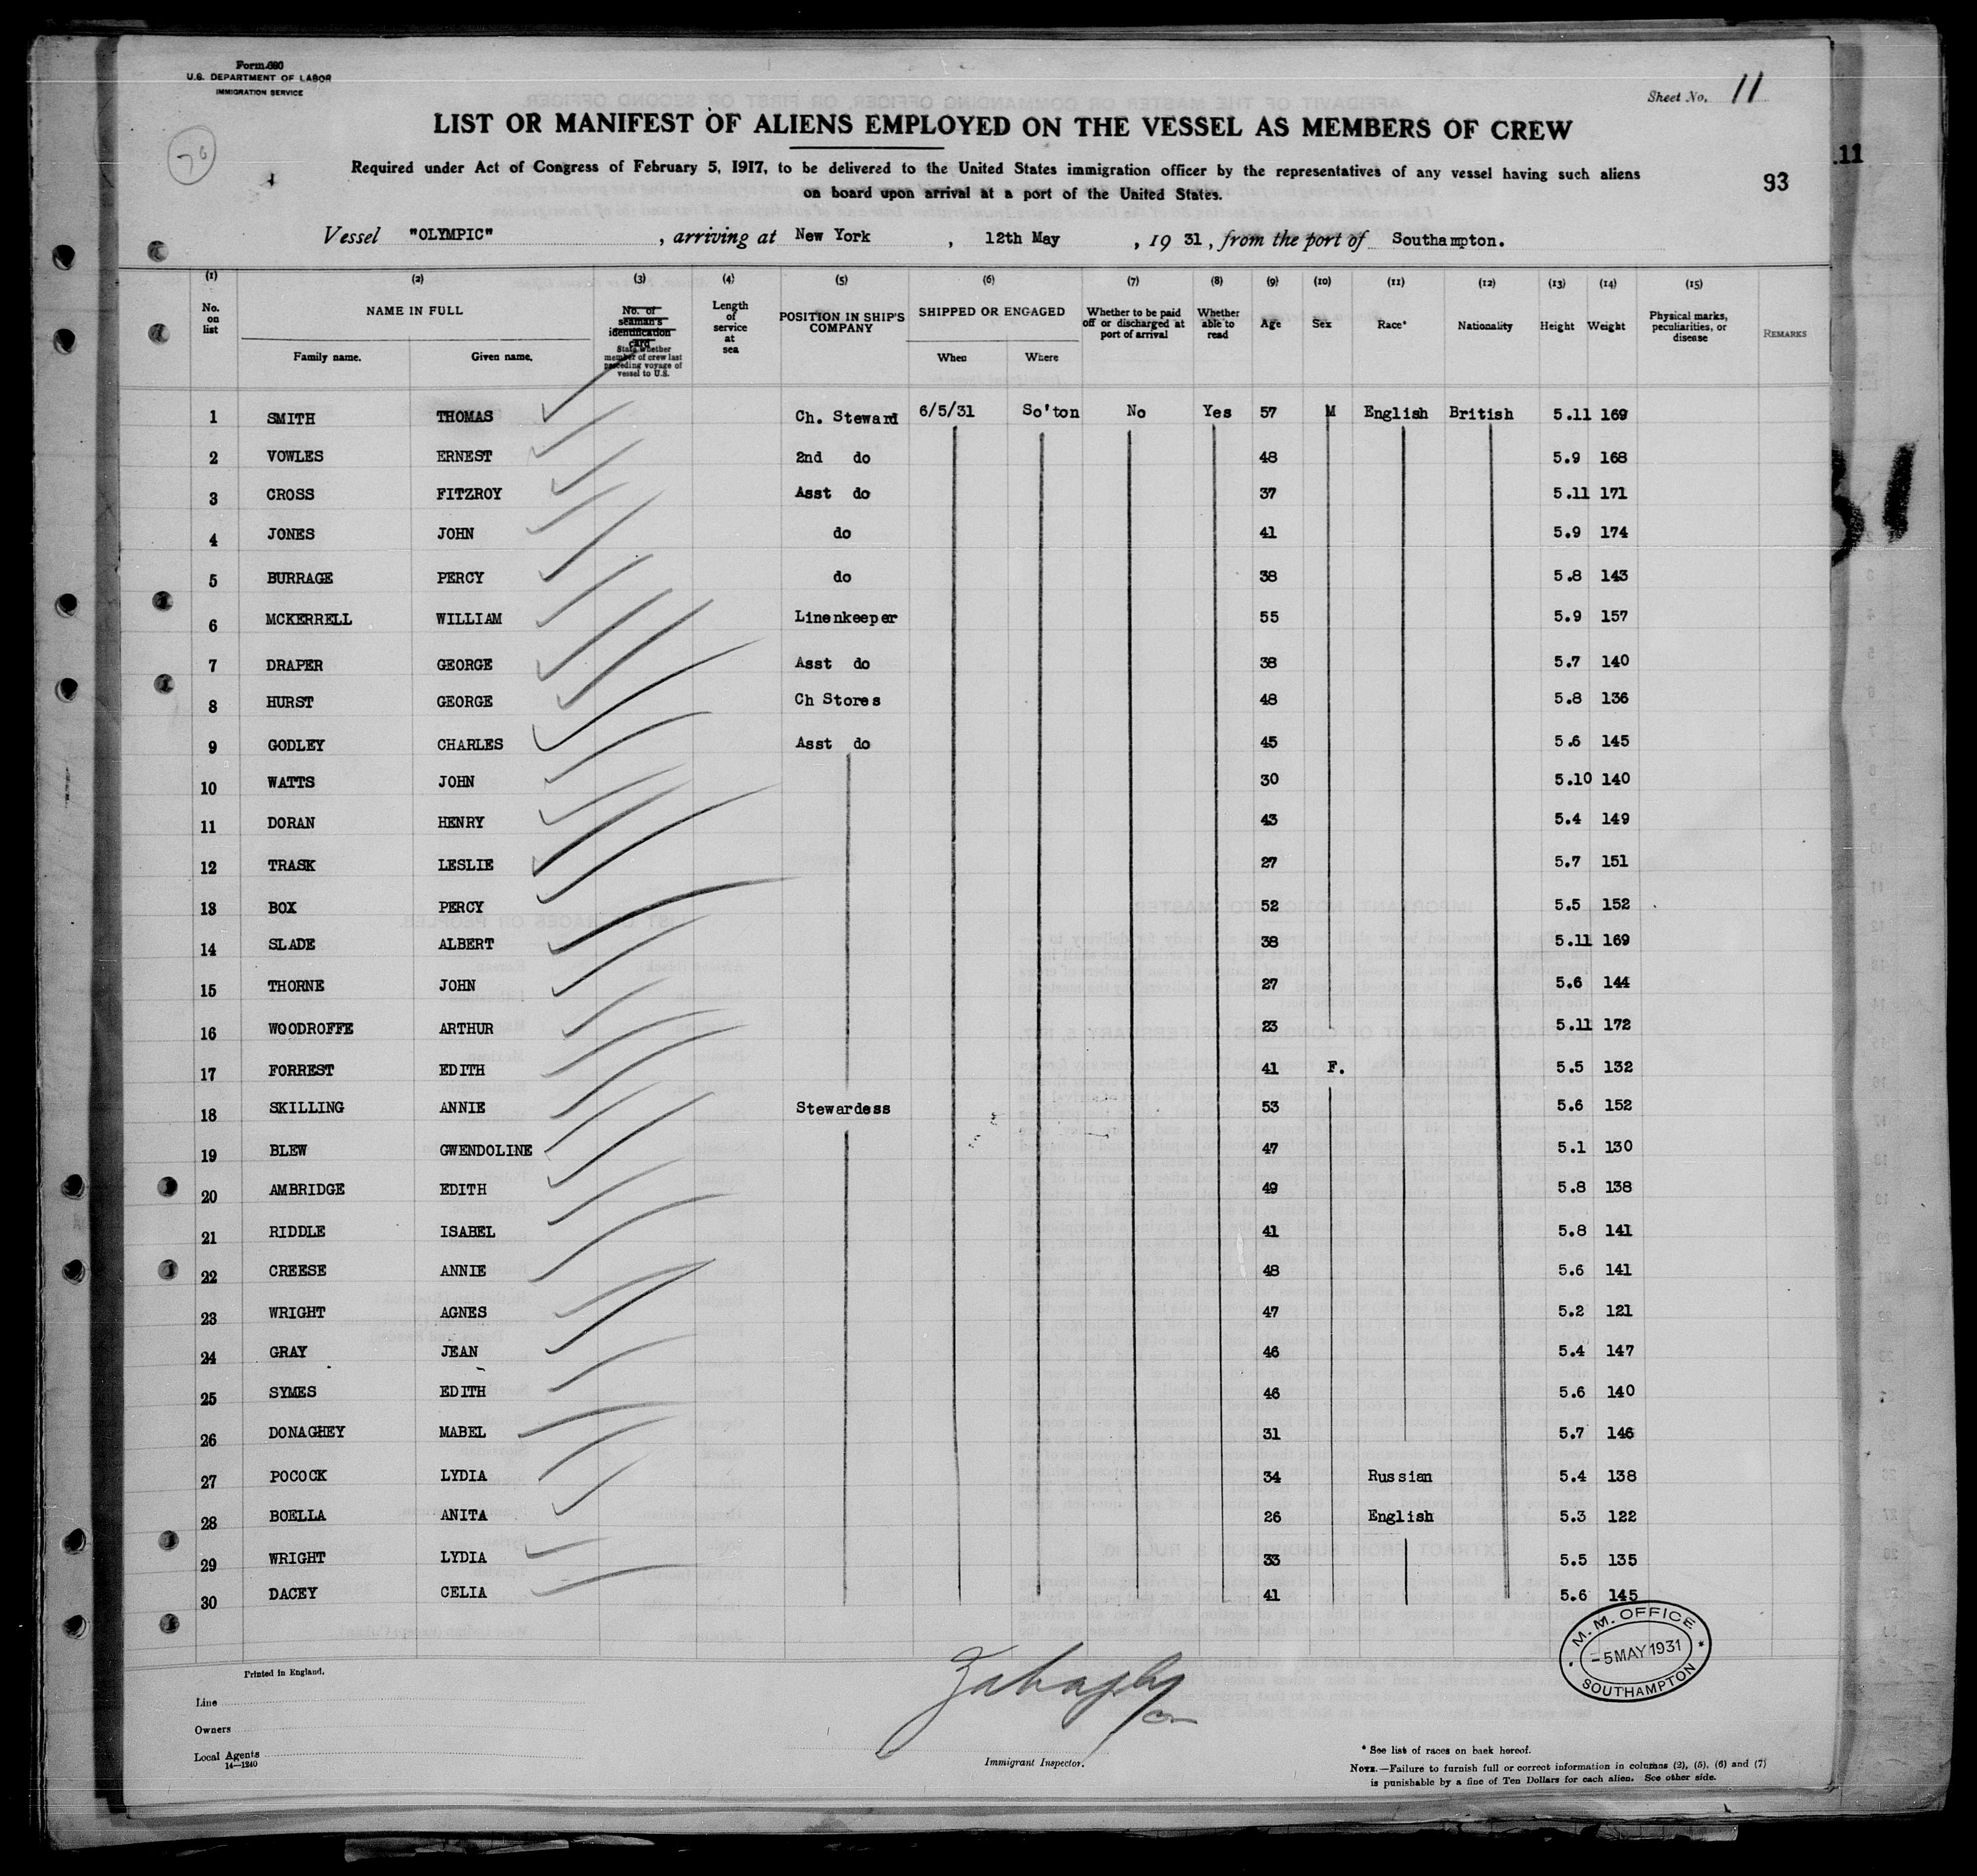 Form 680
U.S. DEPARTMENT OF LABOR
IMMIGRATION SERVICE
Sheet No. 11
LIST OR MANIFEST OF ALIENS EMPLOYED ON THE VESSEL AS MEMBERS OF CREW
.11
Required under Act of Congress of February 5, 1917, to be delivered to the United States immigration officer by the representatives of any vessel having such aliens
on board upon arrival at a port of the United States.
93
Vessel "OLYMPIC", arriving at New York, 12th May, 19 31, from the port of Southampton.
(1) (2) (3) (4) (5) (6) (7) (8) (9) (10) (11) (12) (13) (14) (15)
No. on list NAME IN FULL No. of seaman's identification card State whether member of crew last preceding voyage of vessel to U.S. Length of service at sea POSITION IN SHIP'S COMPANY SHIPPED OR ENGAGED Whether to be paid off or discharged at port of arrival Whether able to read Age Sex Race* Nationality Height Weight Physical marks, peculiarities, or disease REMARKS
Family name. Given name. When Where
1 SMITH THOMAS Ch. Steward 6/5/31 So'ton No Yes 57 M English British 5.11 169
2 VOWLES ERNEST 2nd do 48 5.9 168
3 CROSS FITZROY Asst do 37 5.11 171
4 JONES JOHN do 41 5.9 174
5 BURRAGE PERCY do 38 5.8 143
6 MCKERRELL WILLIAM Linenkeeper 55 5.9 157
7 DRAPER GEORGE Asst do 38 5.7 140
8 HURST GEORGE Ch Stores 48 5.8 136
9 GODLEY CHARLES Asst do 45 5.6 145
10 WATTS JOHN 30 5.10 140
11 DORAN HENRY 43 5.4 149
12 TRASK LESLIE 27 5.7 151
13 BOX PERCY 52 5.5 152
14 SLADE ALBERT 38 5.11 169
15 THORNE JOHN 27 5.6 144
16 WOODROFFE ARTHUR 23 5.11 172
17 FORREST EDITH 41 F. 5.5 132
18 SKILLING ANNIE Stewardess 53 5.6 152
19 BLEW GWENDOLINE 47 5.1 130
20 AMBRIDGE EDITH 49 5.8 138
21 RIDDLE ISABEL 41 5.8 141
22 CREESE ANNIE 48 5.6 141
23 WRIGHT AGNES 47 5.2 121
24 GRAY JEAN 46 5.4 147
25 SYMES EDITH 46 5.6 140
26 DONAGHEY MABEL 31 5.7 146
27 POCOCK LYDIA 34 Russian 5.4 138
28 BOELLA ANITA 26 English 5.3 122
29 WRIGHT LYDIA 33 5.5 135
30 DACEY CELIA 41 5.6 145
M. M. OFFICE
-5 MAY 1931
SOUTHAMPTON
Printed in England.
Line
Owners
Local Agents
14—1240
Immigrant Inspector.
* See list of races on back hereof.
NOTE.—Failure to furnish full or correct information in columns (2), (5), (6) and (7)
is punishable by a fine of Ten Dollars for each alien. See other side.